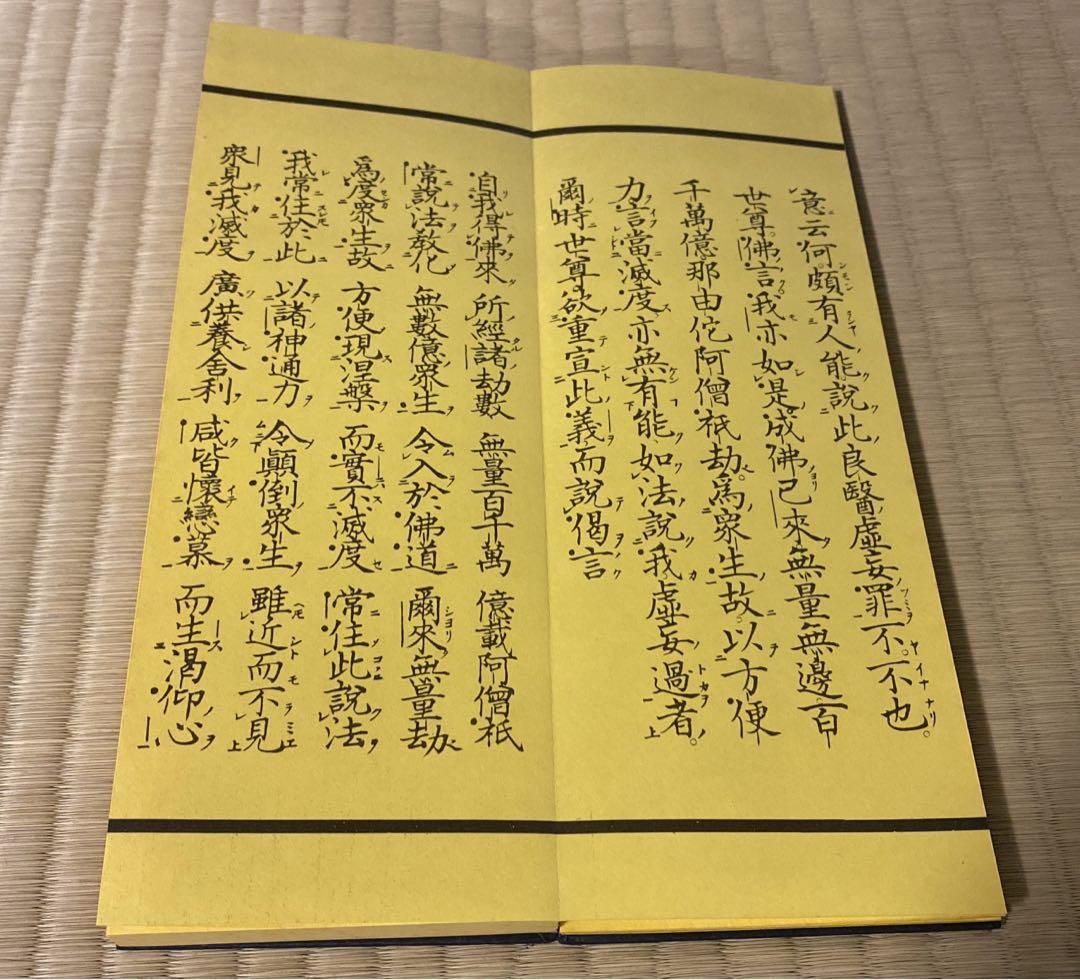 意云何頗有人能說此良醫虛妄罪不不也
世尊佛言我亦如是成佛已來無量無邊百
千萬億那由佗阿僧祇劫爲衆生故以方便
力言當滅度亦無有能如法說我虛妄過者
爾時世尊欲重宣此義而說偈言
自我得佛來 所經諸劫數 無量百千萬 億載阿僧祇
常說法敎化 無數億衆生 令入於佛道 爾來無量劫
爲度衆生故 方便現涅槃 而實不滅度 常住此說法
我常住於此 以諸神通力 令顚倒衆生 雖近而不見
衆見我滅度 廣供養舍利 咸皆懷戀慕 而生渴仰心